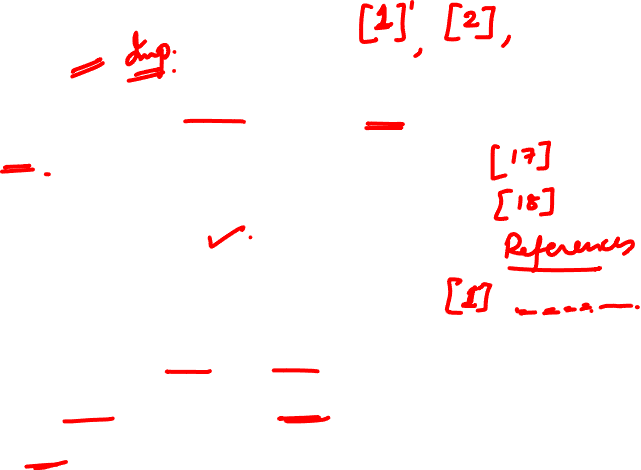 [1], [2],
Imp.
[17]
[18]
References
[1]